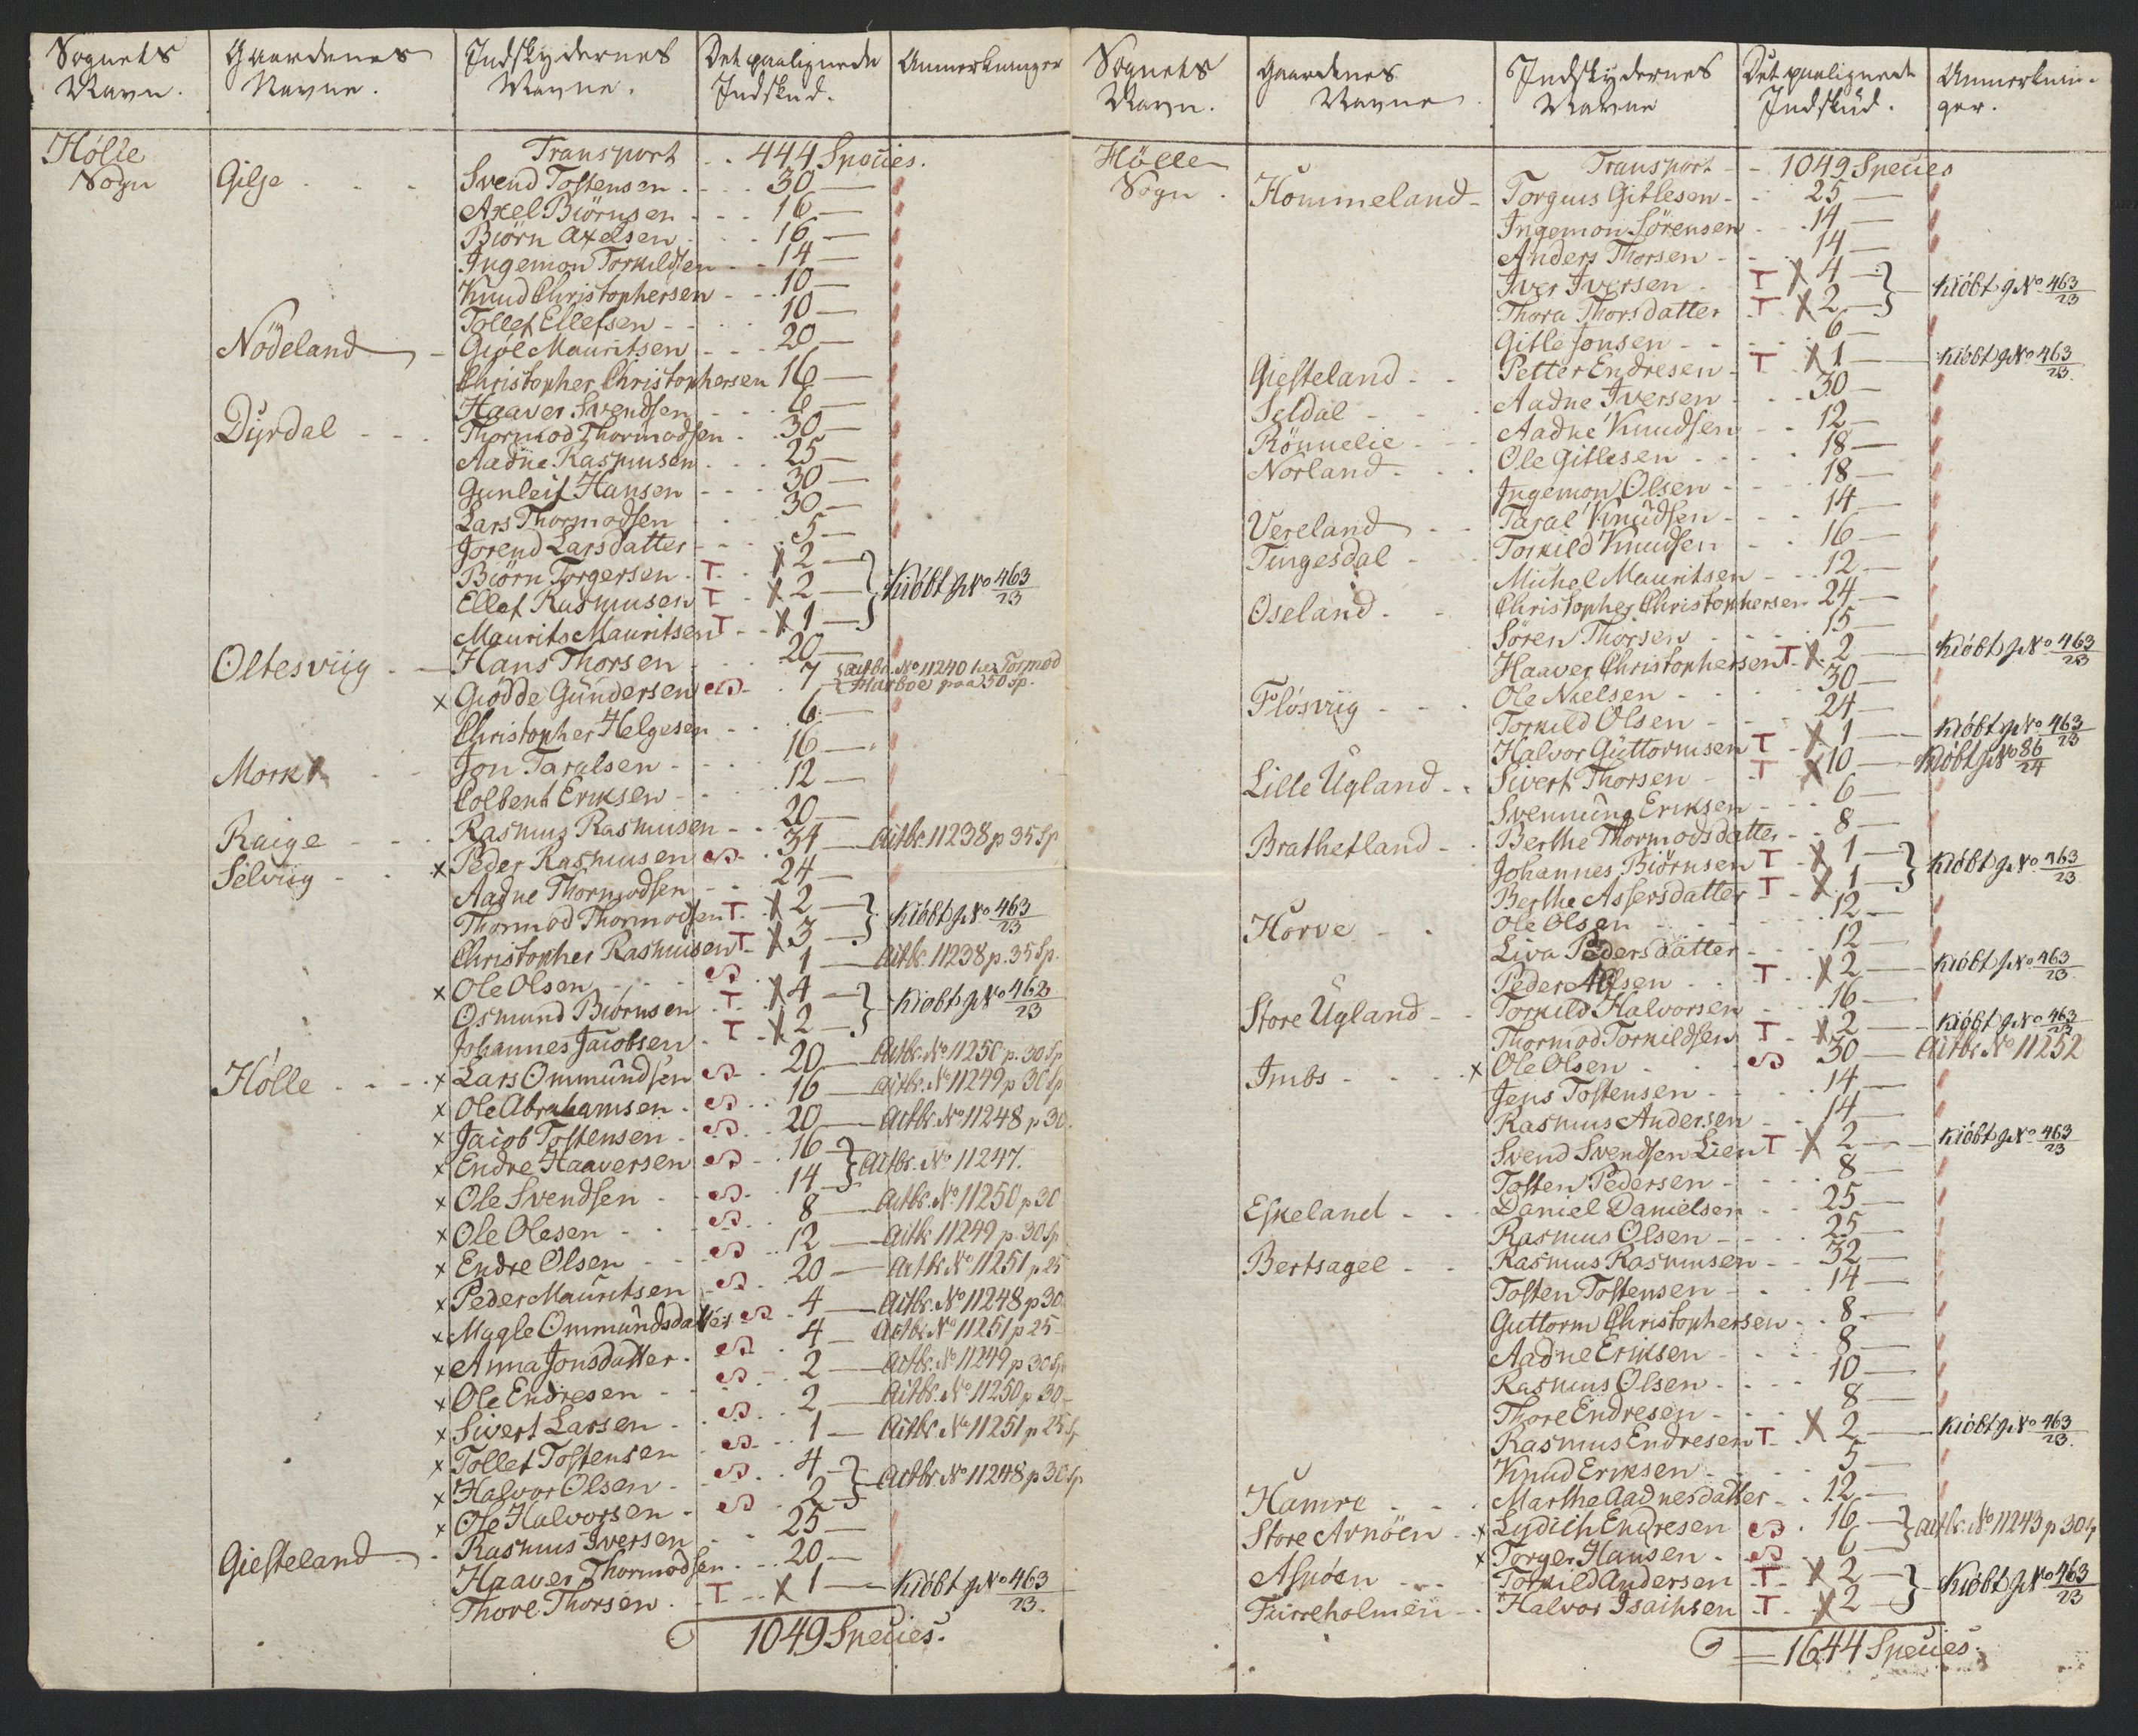 Sognets Navn. | Gaardenes Navne. | Indskydernes Navne. | Det paalignede Indskud. | Anmerkninger
Hölle Sogn | | Transport | 444 Species.
Gilje | Svend Tostensen | 30
Axel Biörnsen | 16
Biörn Axelsen | 16
Ingemon Torkildsen | 14
Knud Christophersen | 10
Tollef Ellefsen | 10
Nödeland | Giöl Mauritsen | 20
Christopher Christophersen | 16
Haaver Svendsen | 6
Dyrdal | Thormod Thormodsen | 30
Aadne Rasmusen | 25
Gunleif Hansen | 30
Lars Thormodsen | 30
Jorend Larsdatter | 5
Biörn Torgersen | T | X 2
Ellef Rasmusen | T | X 2 | Kiöbt J No 463/23
Maurits Mauritsen | T | X 1
Oltesviig | Hans Thorsen | 20
x Giödde Gundersen | S | 7 | Actbr. No 11240 hes Tormod Harboe paa 50 Sp.
Christopher Helgesen | 6
Mork | Jon Taralsen | 16
Colbent Eriksen | 12
Raige | Rasmus Rasmusen | 20
Selviig | x Peder Rasmusen | S | 34 | Actbr. 11238 p 35 Sp
Aadne Thormodsen | 24
Thormod Thormodsen | T | X 2
Christopher Rasmusen | T | X 3 | Kiöbt J No 463/23
x Ole Olsen | S | 1 | Actbr. 11238 p. 35 Sp.
Osmund Biörnsen | T | X 4 | Kiöbt J No 462/23
Johannes Jacobsen | T | X 2
Hölle | x Lars Ommundsen | S | 20 | Actbr. No 11250 p. 30 Sp
x Ole Abrahamsen | S | 16 | Actbr. No 11249 p 30 Sp
x Jacob Tostensen | S | 20 | Actbr. No 11248 p 30.
x Endre Haaversen | S | 16 | Actbr. No 11247.
x Ole Svendsen | S | 14
x Ole Olesen | S | 8 | Actbr. No 11250 p 30
x Endre Olsen | S | 12 | Actbr 11249 p. 30 Sp
x Peder Mauritsen | S | 20 | Actbr No 11251 p 25
x Mygle Ommundsdatter | S | 4 | Actbr. No 11248 p 30
x Anna Jonsdatter | S | 4 | Actbr. No 11251 p 25
x Ole Endresen | S | 2 | Actbr. No 11249 p 30 Sp
x Sivert Larsen | S | 2 | Actbr. No 11250 p 30
x Tollef Tostensen | S | 1 | Actbr. No 11251 p 25 Sp
x Halvor Olsen | S | 4 | Actbr No 11248 p 30 Sp
x Ole Halvorsen | S | 2
Giesteland | Rasmus Iversen | 25
Haaver Thormodsen | 20
Thore Thorsen | T | X 1 | Kiöbt J No 463/23.
1049 Species.
Sognets Navn. | Gaardenes Navne. | Indskydernes Navne | Det paalignede Indskud. | Anmerkninger.
Hölle Sogn | | Transport | 1049 Species
Hommeland | Torguis Gitlesen | 25
Ingemon Sörensen | 14
Anders Thorsen | 14
Iver Iversen | T | X 4 | Kiöbt J No 463/23
Thora Thorsdatter | T | X 2
Gitle Jonsen | 6
Giesteland | Petter Endresen | T | X 1 | Kiöbt J No 463/23.
Seldal | Aadne Iversen | 30
Rönnelie | Aadne Knudsen | 12
Norland | Ole Gitlesen | 18
Ingemon Olsen | 18
Vereland | Taral Knudsen | 14
Tingesdal | Torkild Knudsen | 16
Michel Mauritsen | 12
Oseland | Christopher Christophersen | 24
Sören Thorsen | 15
Haaver Christophersen | T | X 2 | Kiöbt J No 463/23
Flösviig | Ole Nielsen | 30
Torkild Olsen | 24
Halvor Guttormsen | T | X 1 | Kiöbt J No 463/23
Lille Ugland | Sivert Thorsen | T | X 10 | Kiöbt J No 86/24
Svennung Eriksen | 6
Brathetland | Berthe Thormodsdatter | 8
Johannes Biörnsen | T | X 1 | Kiöbt J No 463/23.
Berthe Assersdatter | T | X 1
Horve | Ole Olsen | 12
Liva Pedersdatter | 12
Peder | T | X 2 | Kiöbt J No 463/23.
Store Ugland | Torkild Halvorsen | 16
Thormod Torkildsen | T | X 2 | Kiöbt J No 463/23
Imbs | x Ole Olsen | S | 30 | Actbr No 11252
Jens Tostensen | 14
Rasmus Andersen | 14
Svend Svendsen Lien | T | X 2 | Kiöbt J No 463/23
Tosten Pedersen | 8
Eskeland | Daniel Danielsen | 25
Rasmus Olsen | 25
Bertsagel | Rasmus Rasmusen | 32
Tosten Tostensen | 14
Guttorm Christophersen | 8
Aadne Eriksen | 8
Rasmus Olsen | 10
Thore Endresen | 8
Rasmus Endresen | T | X 2 | Kiöbt J No 463/23.
Knud Eriksen | 5
Hamre | Marthe Aadnesdatter | 12
Store Arnöen | x Lydich Endresen | S | 16 | Actbr. No 11243 p 30 Sp
x Torger Hansen | S | 6
Aspöen | Torkild Andersen | T | X 2 | Kiöbt J No 463/23
Furreholmen | Halvor Isachsen | T | X 2
1644 Species.